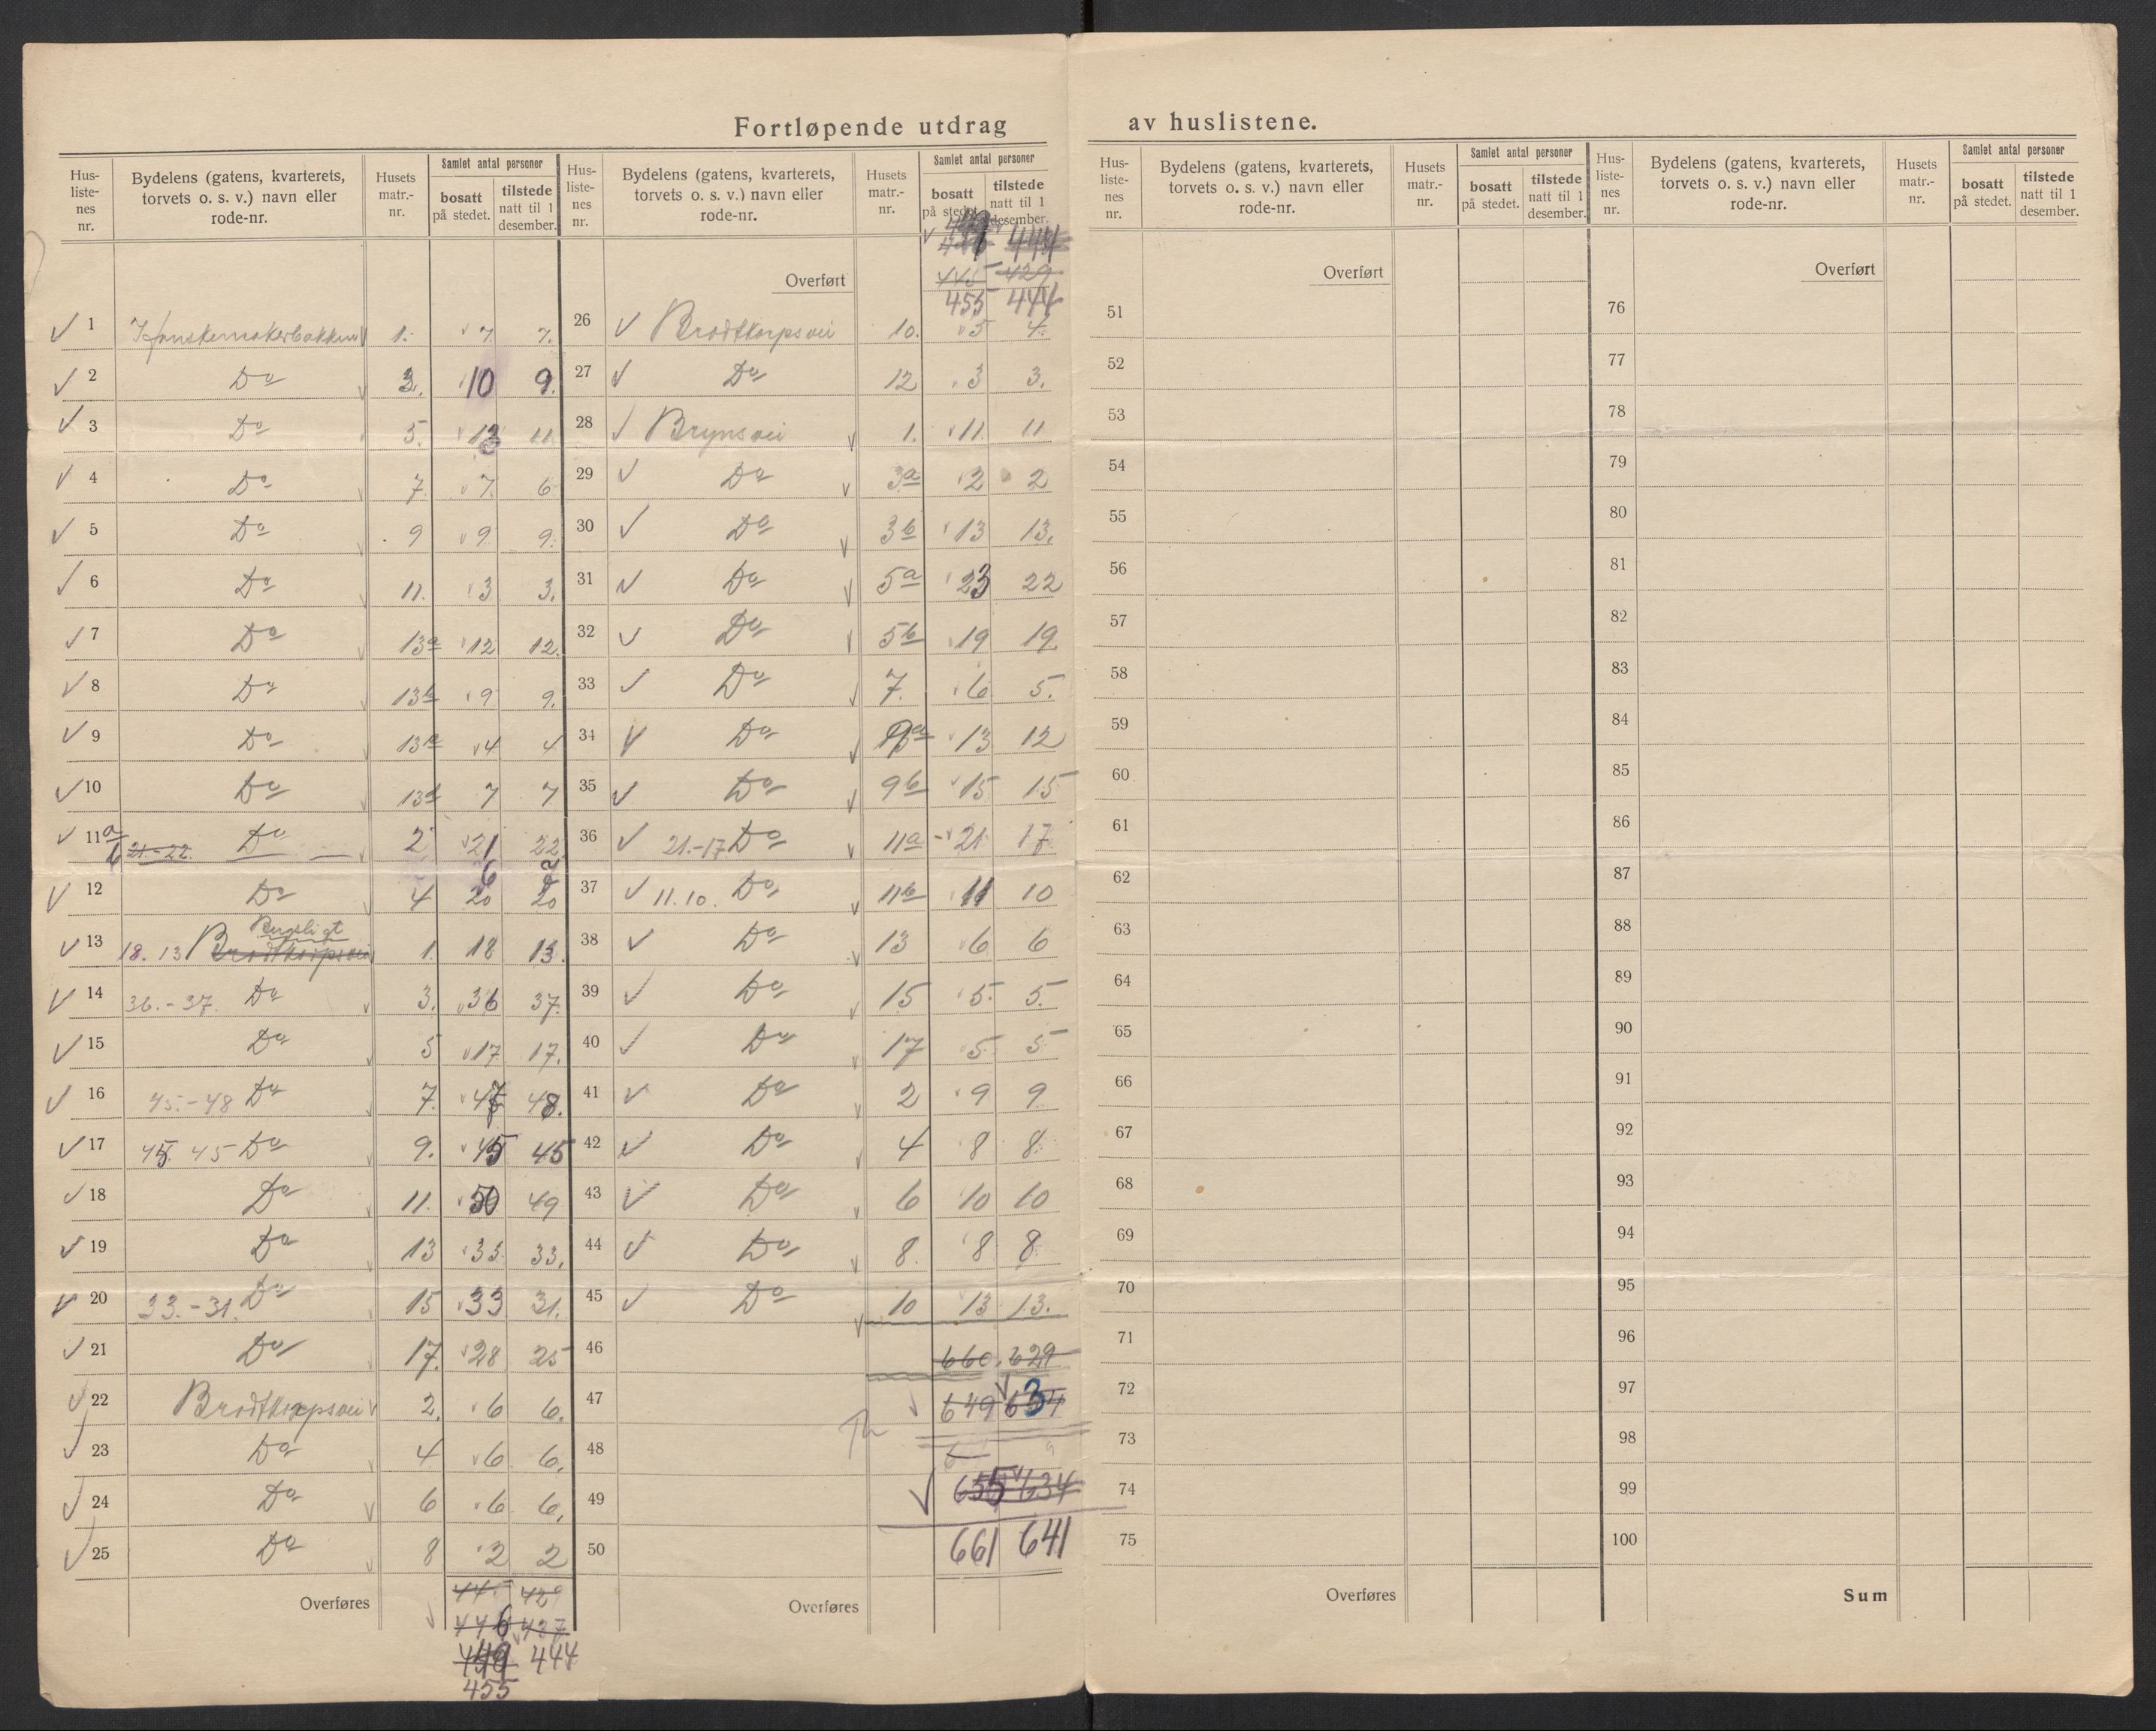 Fortløpende utdrag av huslistene.
Hus-listenes nr. Bydelens (gatens, kvarterets, torvets o. s. v.) navn eller rode-nr. Husets matr.-nr. Samlet antal personer bosatt på stedet. tilstede natt til 1 desember.
1 Hanskemakerbakken 1. 7. 7.
2 Do 3. 10 9.
3 Do 5. 13 11.
4 Do 7. 7. 6
5 Do 9 9 9.
6 Do 11. 3 3.
7 Do 13a 12 12.
8 Do 13b 9 9.
9 Do 13a 4 4
10 Do 13b 7 7
11 a/b 21.-22. Do 2 21 22
6
12 Do 4 20 20
13 18. 13 Brodtkorpsvei 1. 18 13.
14 36.-37. Do 3. 36 37.
15 Do 5 17. 17.
16 45.-48 Do 7. 47 48.
17 45. 45 Do 9. 45 45
18 Do 11. 50 49
19 Do 13 33. 33.
20 33.-31. Do 15 33 31.
21 Do 17. 28 25
22 Brodtkorpsvei 2. 6 6.
23 Do 4 6 6.
24 Do 6 6 6.
25 Do 8 2 2
Overføres 445 429
446 437
449 444
455
Hus-listenes nr. Bydelens (gatens, kvarterets, torvets o. s. v.) navn eller rode-nr. Husets matr.-nr. Samlet antal personer bosatt på stedet. tilstede natt til 1 desember.
444
Overført 445 429
455 444
26 Brodtkorpsvei 10. 5 4.
27 Do 12 3 3.
28 Brynsvei 1. 11. 11
29 Do 3a 2 2
30 Do 3b 13 13.
31 Do 5a 23 22
32 Do 5b 19 19.
33 Do 7. 6 5.
34 Do 9a 13 12
35 Do 9b 15 15
36 21.-17 Do 11a 21 17
37 11. 10. Do 11b 11 10
38 Do 13 6 6
39 Do 15 5. 5.
40 Do 17 5 5
41 Do 2 9 9
42 Do 4 8 8
43 Do 6 10 10
44 Do 8. 8 8
45 Do 10 13 13.
46 660. 629
47 649 634
48 6 9
49 655 634
50 661 641
Overføres
Hus-listenes nr. Bydelens (gatens, kvarterets, torvets o. s. v.) navn eller rode-nr. Husets matr.-nr. Samlet antal personer bosatt på stedet. tilstede natt til 1 desember.
Overført
51
52
53
54
55
56
57
58
59
60
61
62
63
64
65
66
67
68
69
70
71
72
73
74
75
Overføres
Hus-listenes nr. Bydelens (gatens, kvarterets, torvets o. s. v.) navn eller rode-nr. Husets matr.-nr. Samlet antal personer bosatt på stedet. tilstede natt til 1 desember.
Overført
76
77
78
79
80
81
82
83
84
85
86
87
88
89
90
91
92
93
94
95
96
97
98
99
100
Sum